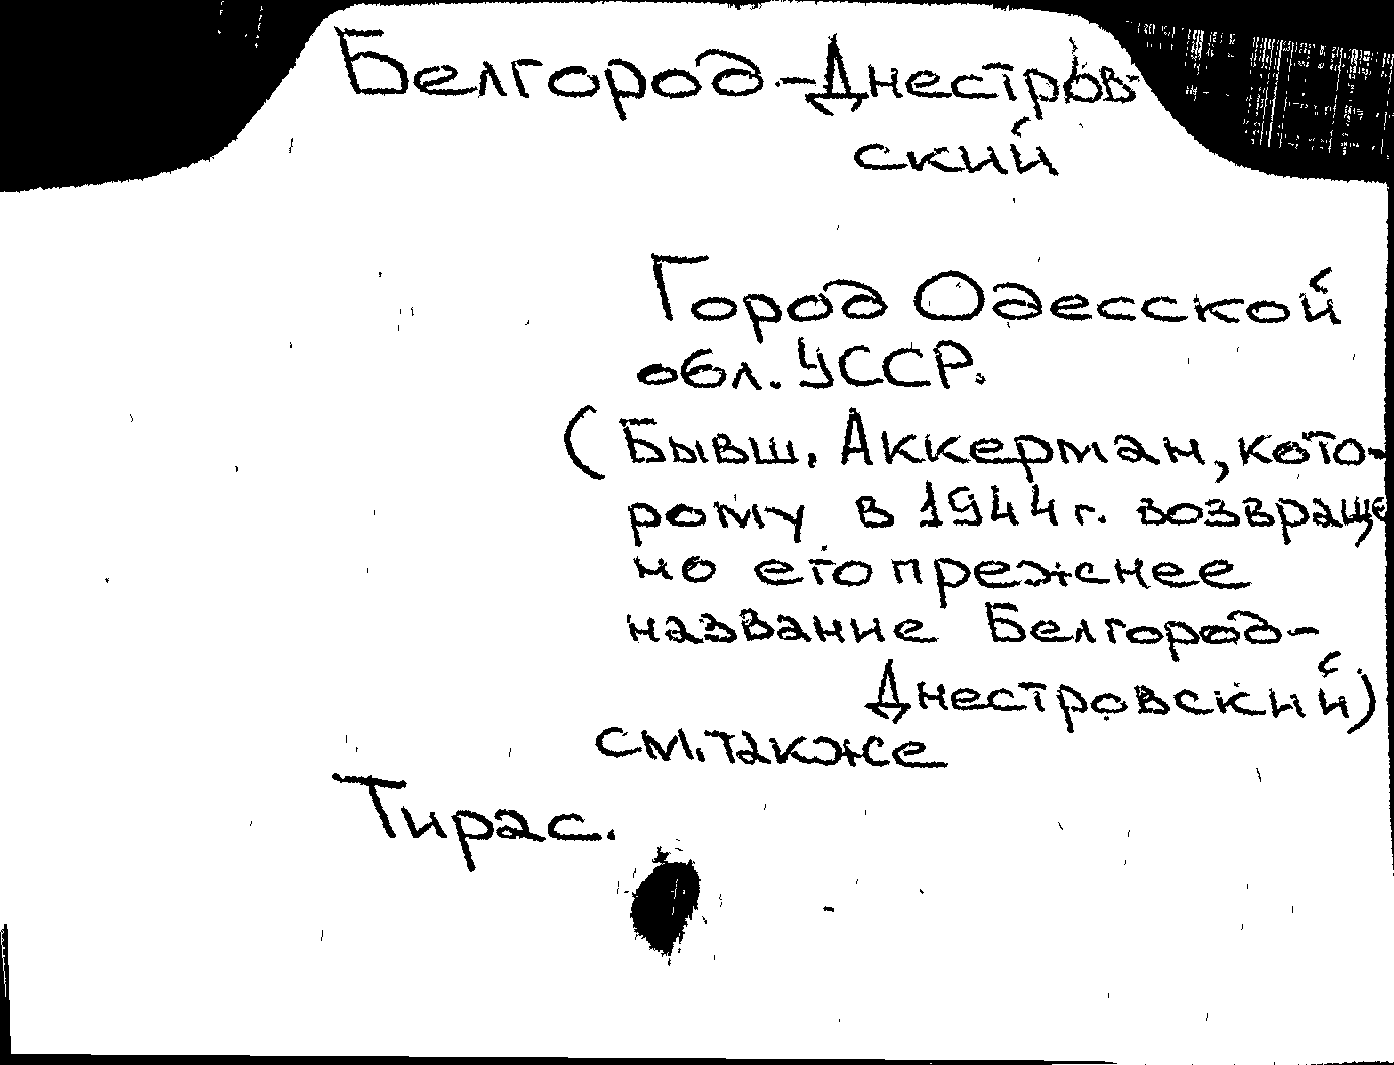 Белгород-Днестров-
ский
Город Одесской
обл. УССР.
(Бывш. Аккерман, кото-
рому в 1944 г. возвраще
но его прежнее
название Белгород-
Днестровский)
см. также
Тирас.